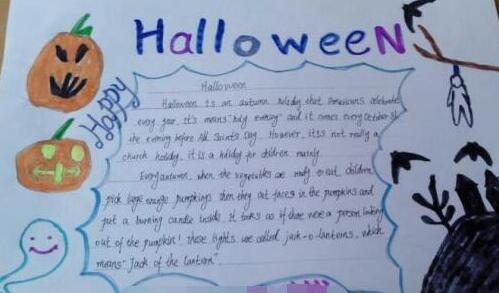 HalloweeN
Happy
Halloween
Halloween is an autumn holiday that Americans celebrate
every year. It's means "holy evening" and it comes every October 31
the evening before All Saints Day. However, it's not really a
church holiday, it is a holiday for children mainly.
Every autumn, when the vegetables are ready to eat, children
pick large orange pumpkins. Then they cut faces in the pumpkins and
put a burning candle inside. It looks as if there were a person looking
out of the pumpkin! These lights are called jack-o-lanterns, which
means "Jack of the lantern".